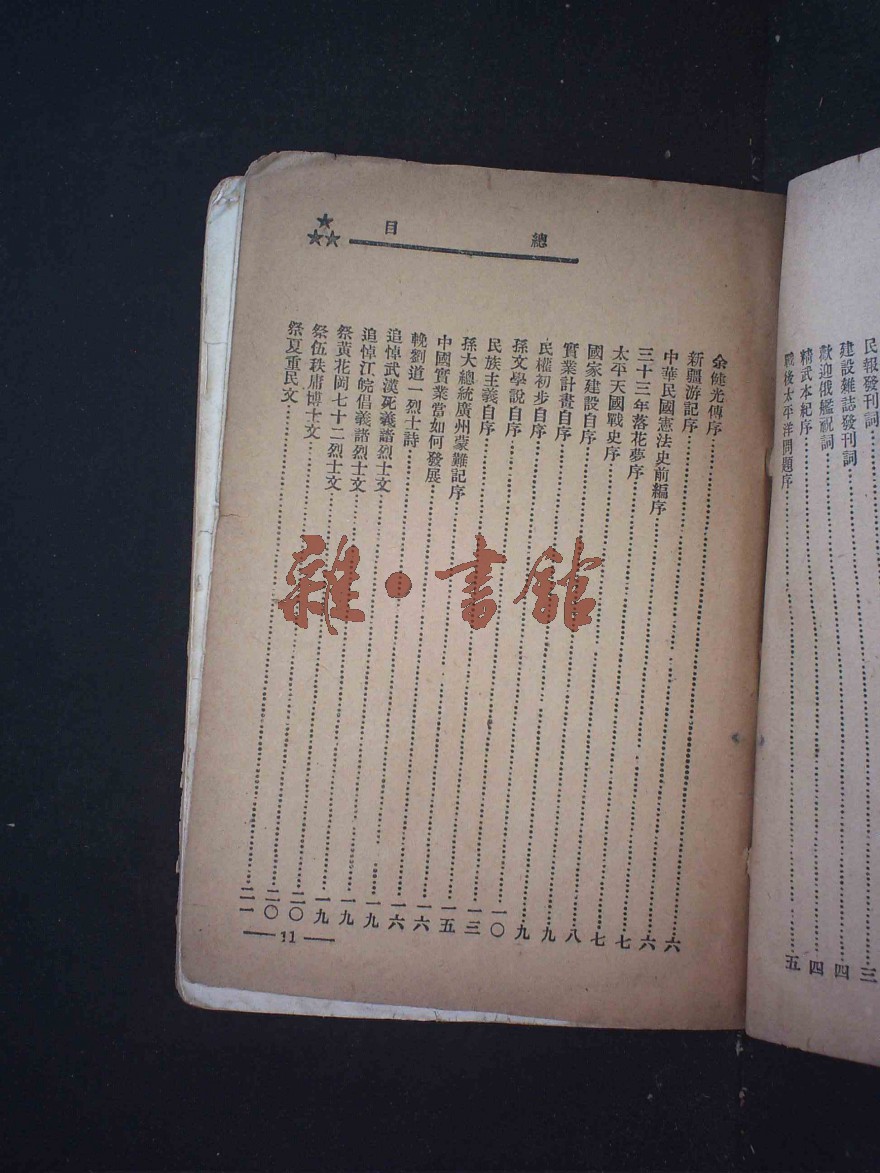 民報發刊詞
建設雜誌發刊詞 三
歡迎俄艦祝詞 四
精武本紀序 四
戰後太平洋問題序 五
總目
余健光傳序 六
新疆游記序 六
中華民國憲法史前編序 七
三十三年落花夢序 七
太平天國戰史序 八
國家建設自序 九
實業計畫自序 九
民權初步自序 一〇
孫文學說自序 一三
民族主義自序 一五
孫大總統廣州蒙難記序 一六
中國實業當如何發展 一六
輓劉道一烈士詩 一九
追悼武漢死義諸烈士文 一九
追悼江皖倡義諸烈士文 一九
祭黃花岡七十二烈士文 二〇
祭伍秩庸博士文 二〇
祭夏重民文 二一
— 11 —
雜·書館